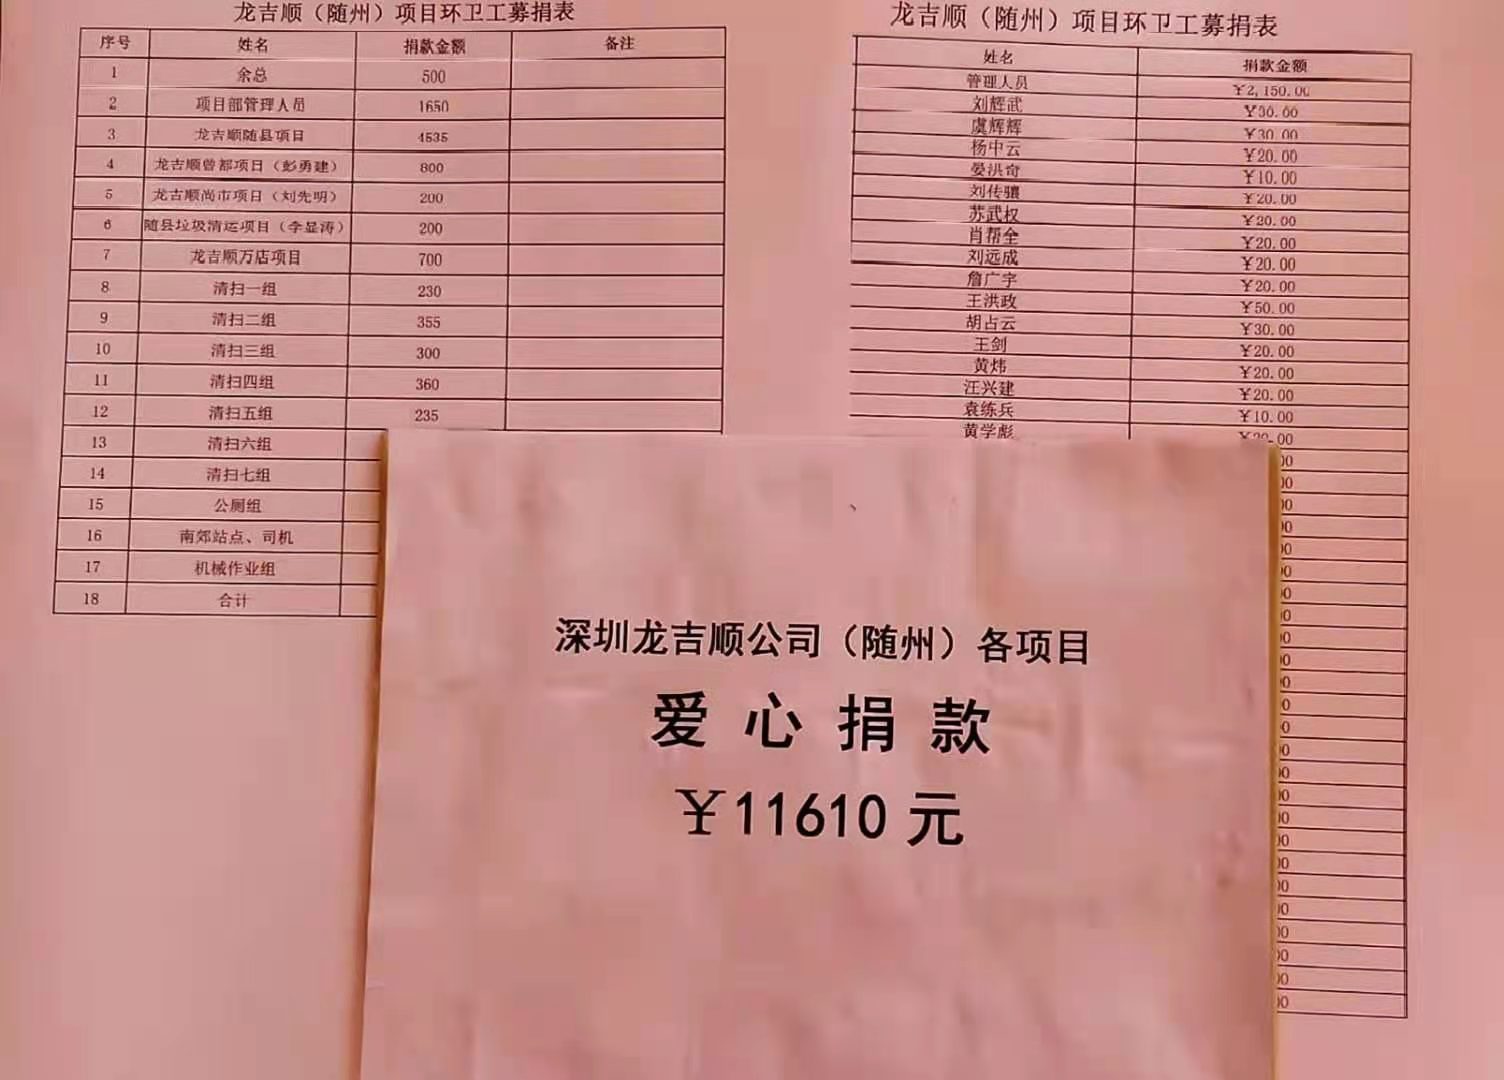 龙吉顺（随州）项目环卫工募捐表
序号 姓名 捐款金额 备注
1 余总 500
2 项目部管理人员 1650
3 龙吉顺随县项目 4535
4 龙吉顺曾都项目（彭勇建） 800
5 龙吉顺尚市项目（刘先明） 200
6 随县垃圾清运项目（李显涛） 200
7 龙吉顺万店项目 700
8 清扫一组 230
9 清扫二组 355
10 清扫三组 300
11 清扫四组 360
12 清扫五组 235
13 清扫六组
14 清扫七组
15 公厕组
16 南郊站点、司机
17 机械作业组
18 合计
龙吉顺（随州）项目环卫工募捐表
姓名 捐款金额
管理人员 ￥2,150.00
刘辉武 ￥30.00
虞辉辉 ￥30.00
杨中云 ￥20.00
晏洪奇 ￥10.00
刘传骧 ￥20.00
苏武权 ￥20.00
肖帮全 ￥20.00
刘远成 ￥20.00
詹广宇 ￥20.00
王洪政 ￥50.00
胡占云 ￥30.00
王剑 ￥20.00
黄炜 ￥20.00
汪兴建 ￥20.00
袁练兵 ￥10.00
黄学彪
深圳龙吉顺公司（随州）各项目
爱心捐款
￥11610元